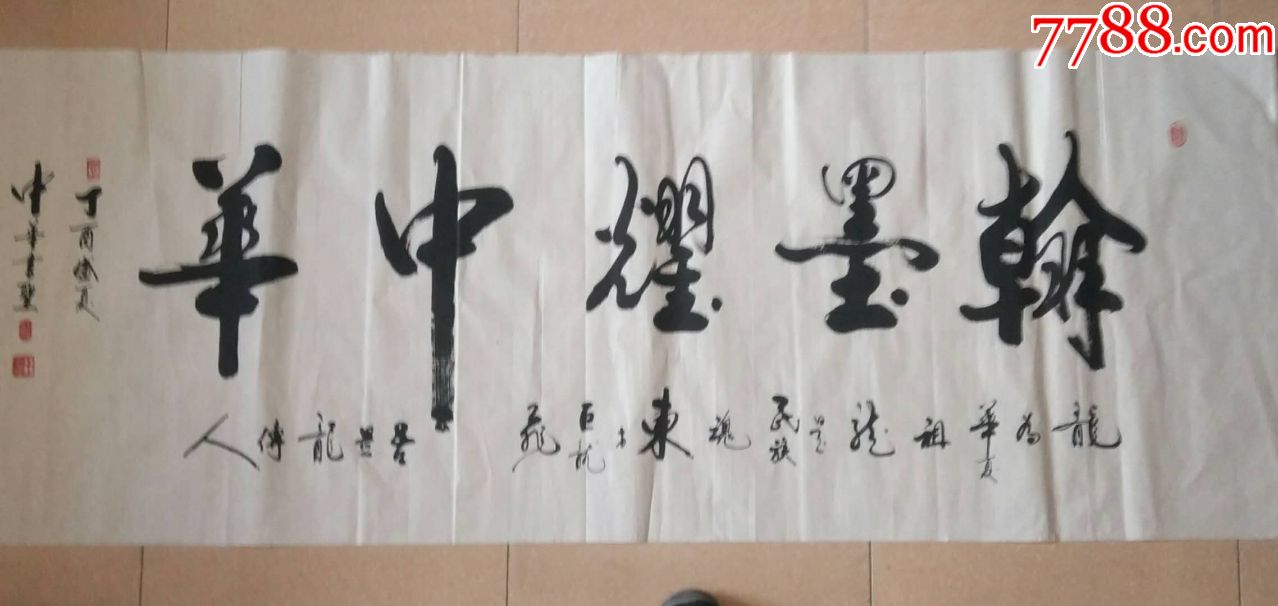 7788.com
翰墨耀中華
龍為華夏祖龍是民族魂東方巨龍飛舉世龍傳人
丁酉歲夏
中華書聖